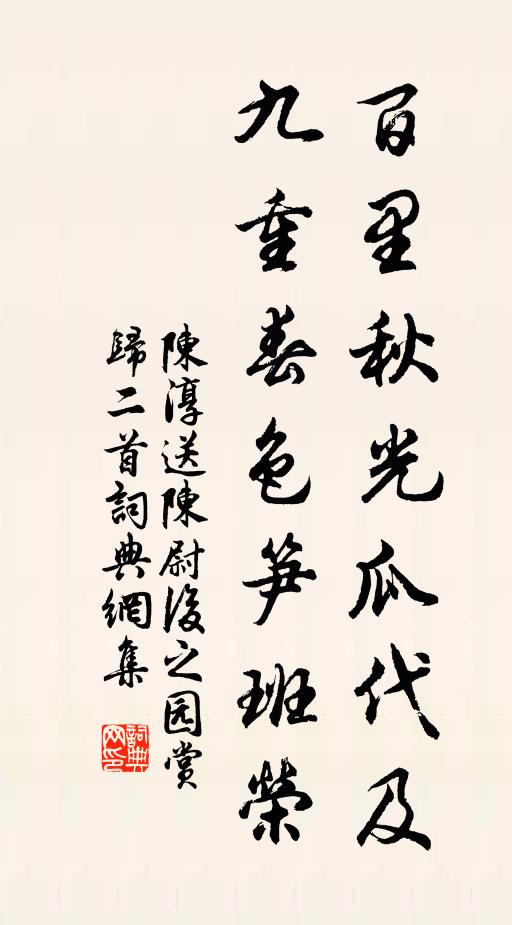 百里秋光瓜代及
九重春色笋班榮
陳淳送陳尉後之园賞
歸二首詞典網集
詞典網印